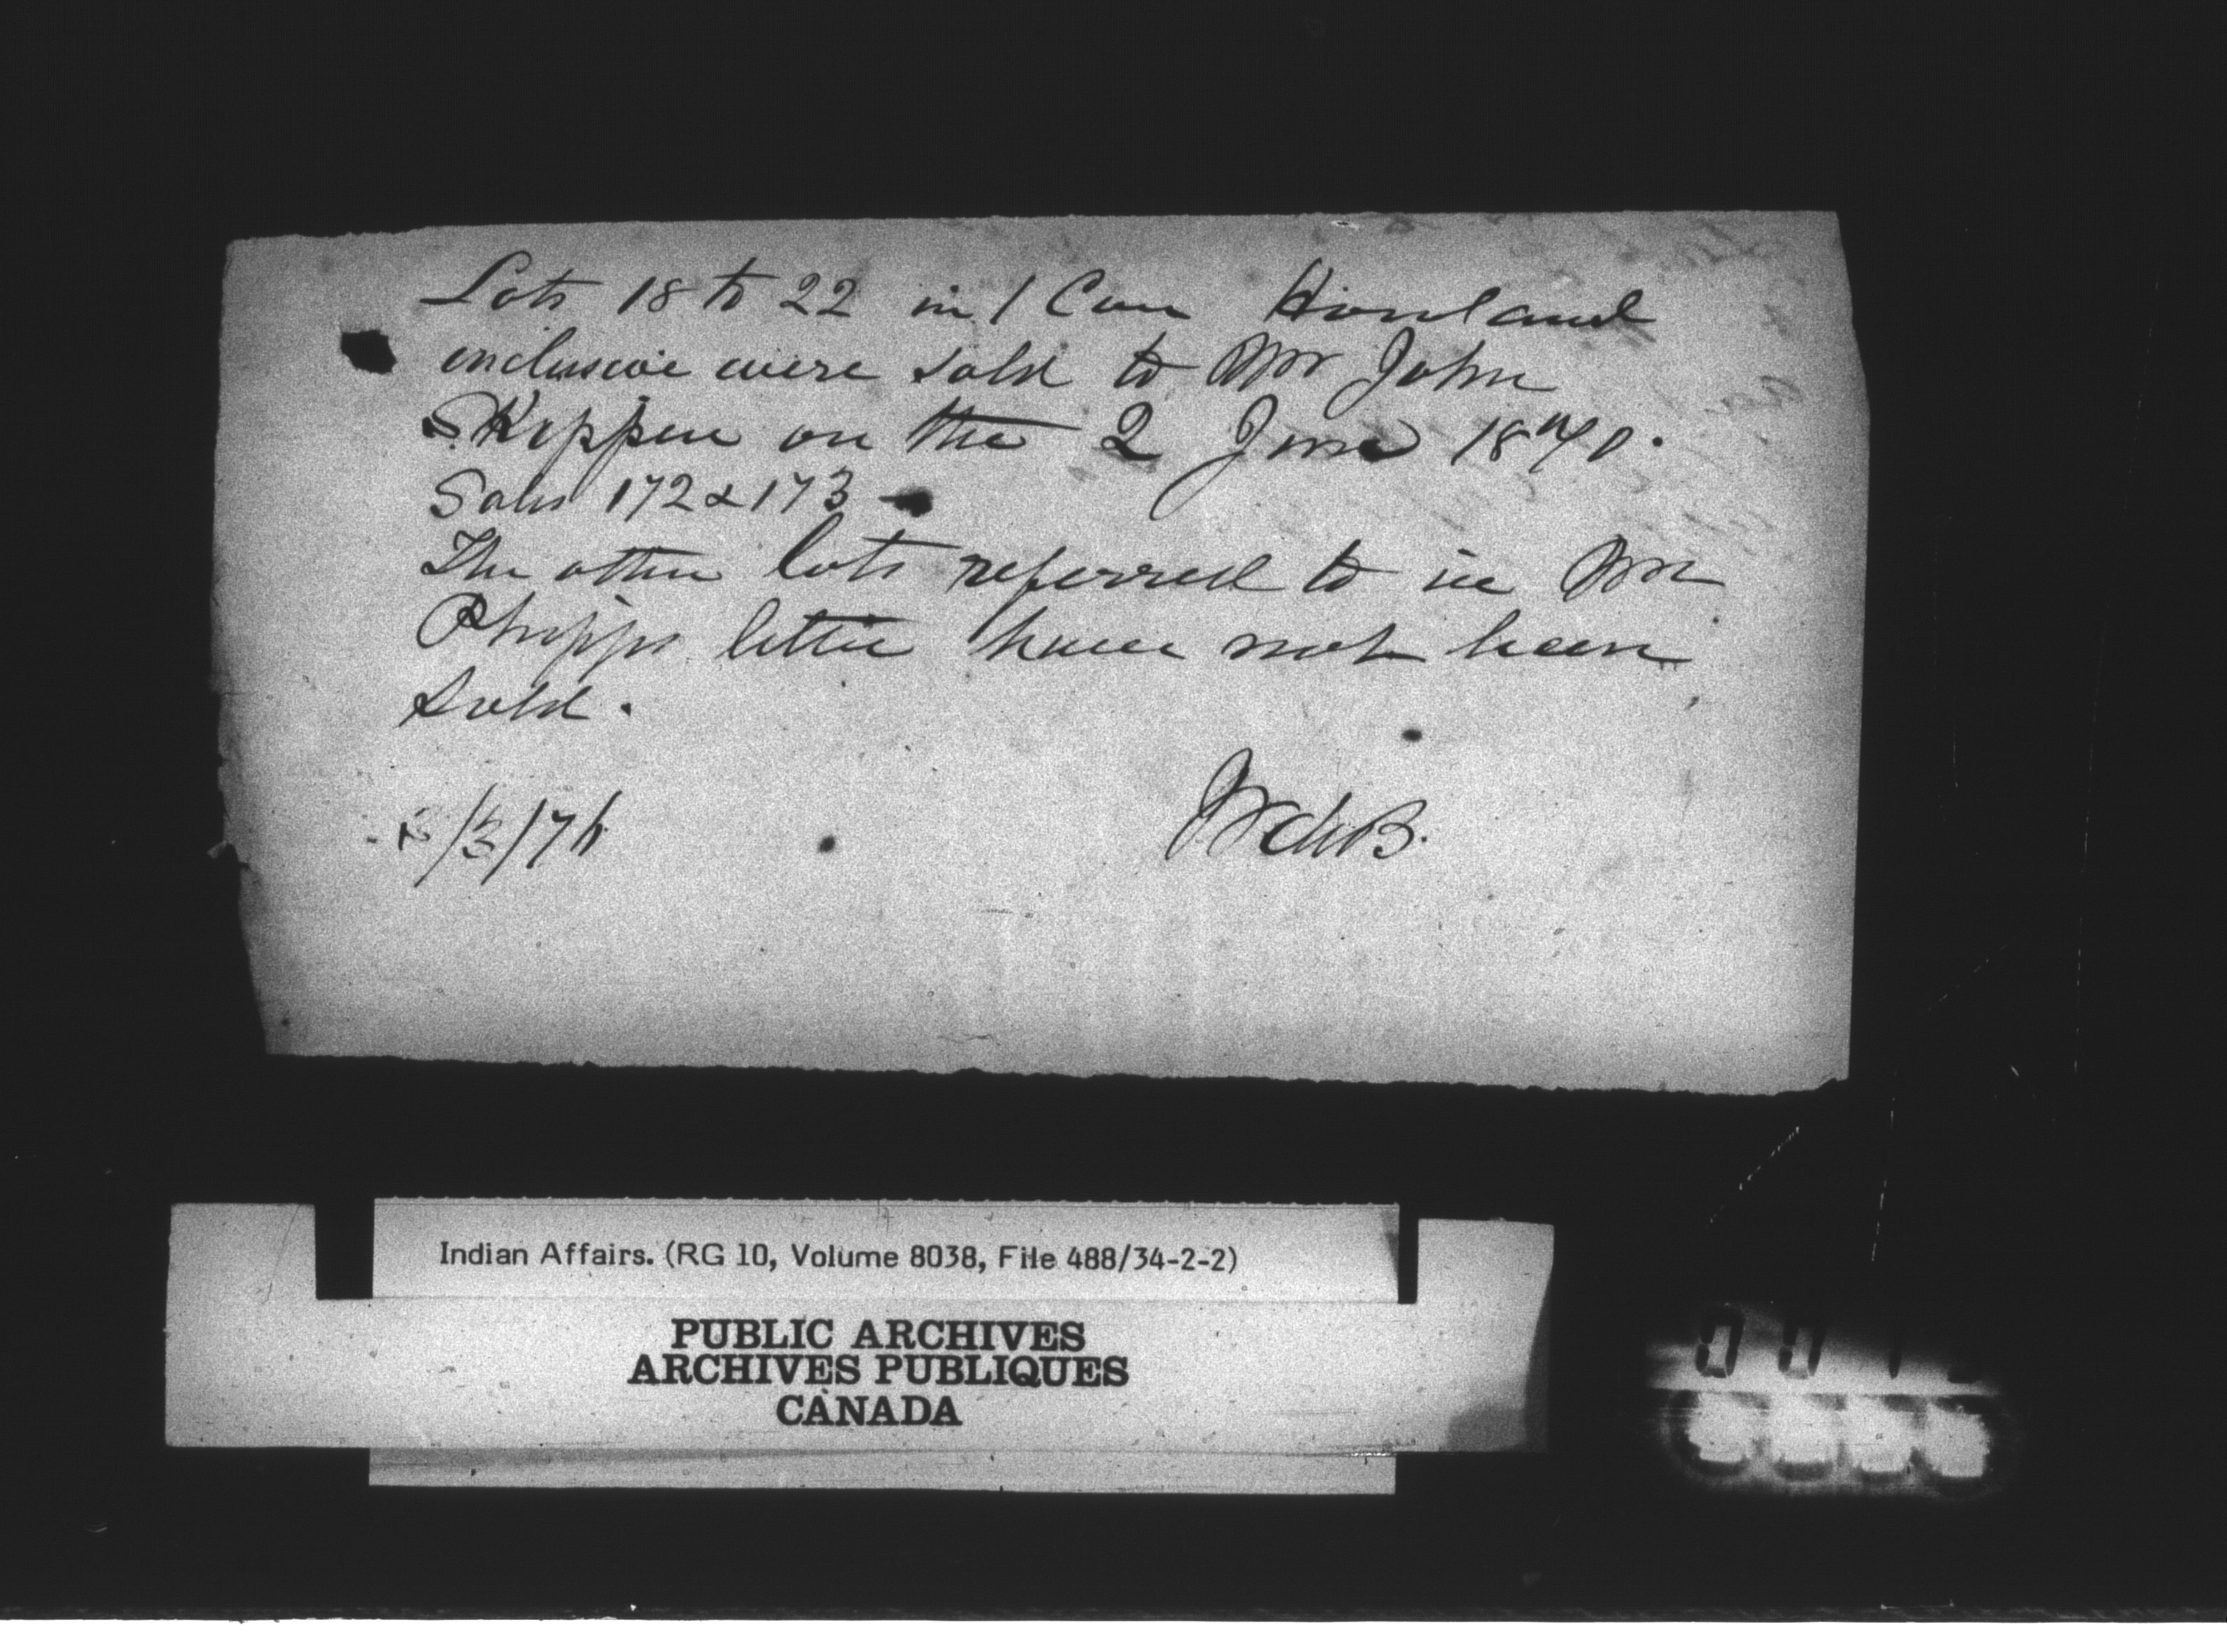 Lots 18 to 22 in 1 Con Howland
inclusive were sold to Mr John
Skippen on the 2 June 1870.
Sales 172 & 173
The other lots referred to in Mr
Phipps letter have not been
sold.
/3/76
JVdeB.
Indian Affairs. (RG 10, Volume 8038, File 488/34-2-2)
PUBLIC ARCHIVES
ARCHIVES PUBLIQUES
CANADA